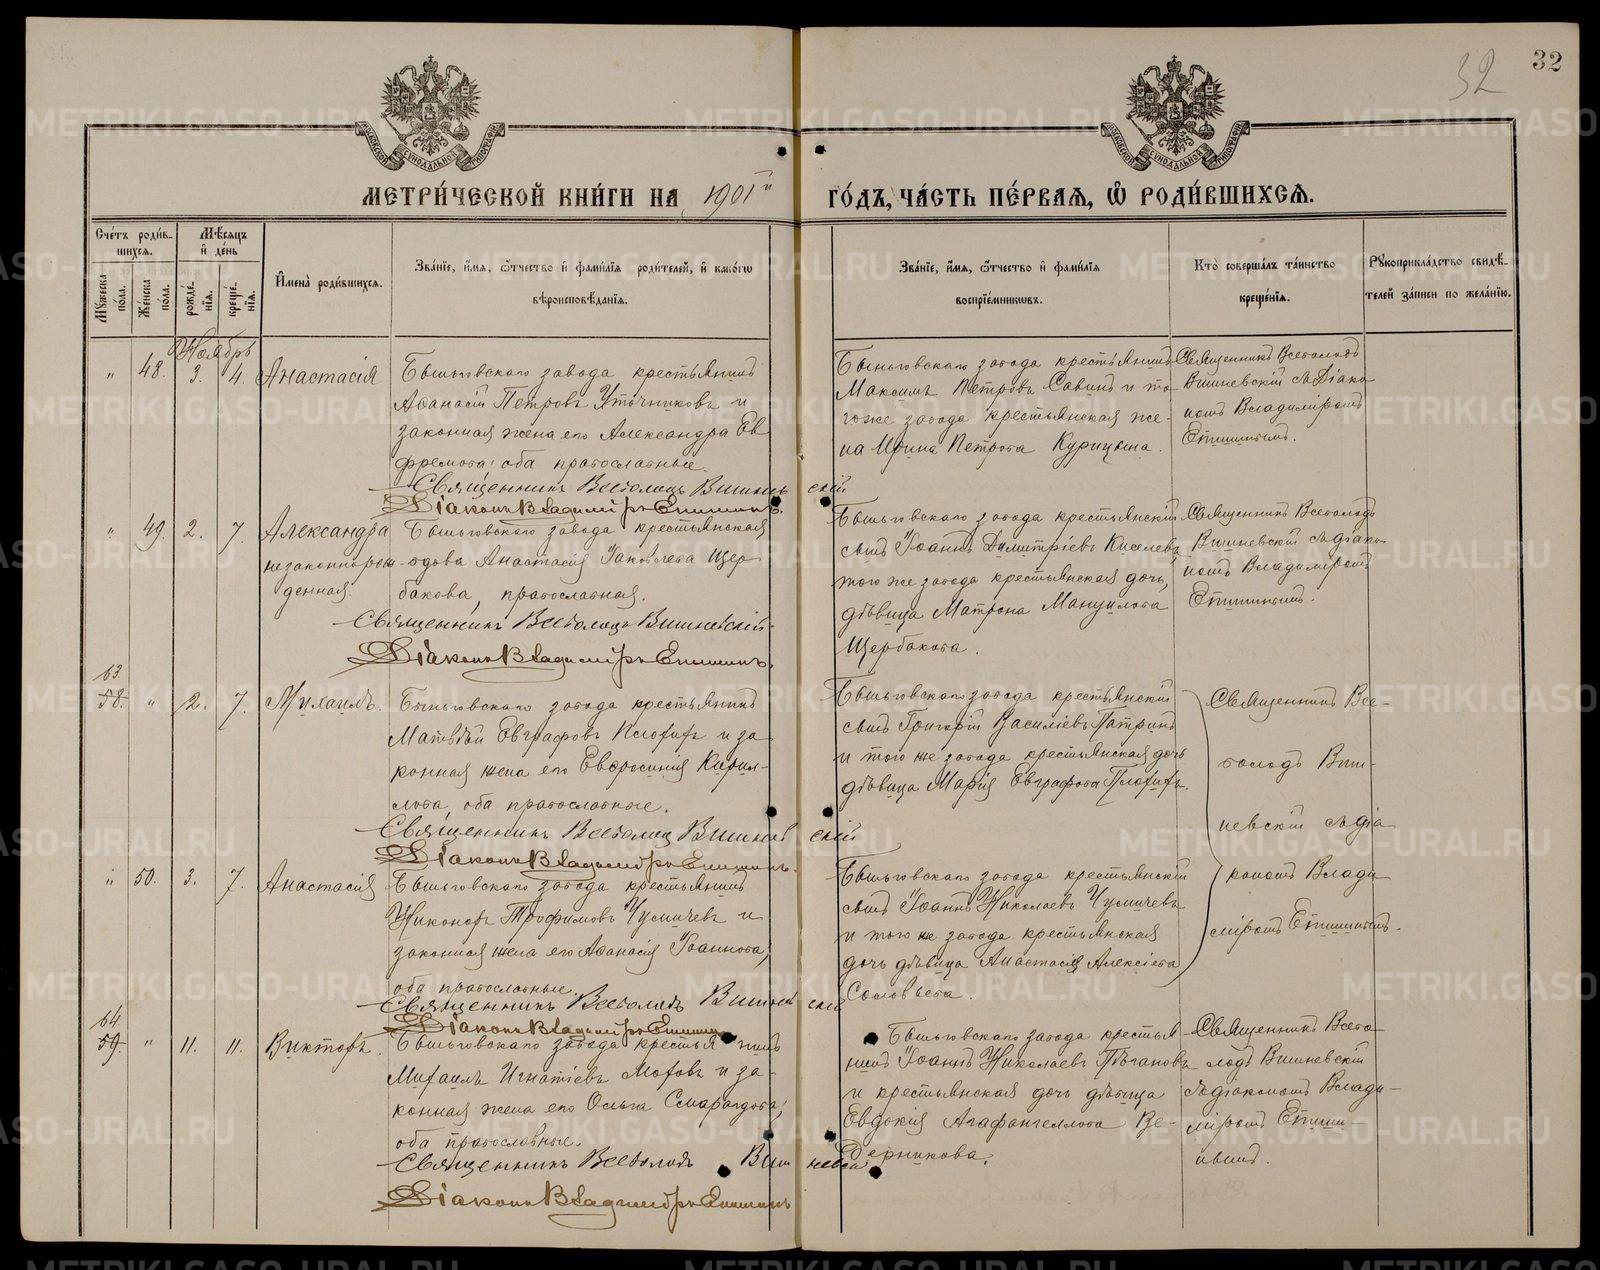 32
32
МЕТРИ́ЧЕСКОЙ КНИ́ГИ НА 1901й ГО́ДЪ, ЧА́СТЬ ПЕ́РВАЯ, Ѽ РОДИ́ВШИХСЯ.
Сче́тъ роди́вшихся.
Мѣ́сяцъ и҆ де́нь
Мꙋ́жеска по́ла.
Же́нска по́ла.
рожде́нїя.
креще́нїя.
И҆мена̀ роди́вшихся.
Зва́нїе, и҆́мя, ѻ҆́тчество и҆ фами́лїя роди́телей, и҆ како́гѡ
вѣроисповѣ́данїя.
Зва́нїе, и҆́мя, ѻ҆́тчество и҆ фами́лїя
воспрїе́мникѡвъ.
Кто̀ соверша́лъ та́инство
креще́нїя.
Рꙋкоприкла́дство свидѣ́телей за́писи по жела́нїю.
Ноябрь
" 48. 3. 4. Анастасія
Быньговскаго завода крестьянинъ
Афанасій Петровъ Уточниковъ и
законная жена его Александра Ев
фремова: оба православные.
Священникъ Всеволодъ Вишневскій
Діаконъ Владиміръ Епишинъ.
Быньговскаго завода крестьянинъ
Максимъ Петровъ Савинъ и то
гоже завода крестьянская же-
на Ирина Петрова Курицына.
Священникъ Всеволодъ
Вишневскій съ Діако
номъ Владиміромъ
Епишинымъ.
" 49. 2. 7. Александра
незаконнорож-
денная.
Быньговскаго завода крестьянская
вдова Анастасія Іаковлева Щер
бакова, православная.
Священникъ Всеволодъ Вишневскій.
Діаконъ Владиміръ Епишинъ.
Быньговскаго завода крестьянскій
сынъ Іоаннъ Димитріевъ Киселевъ
того же завода крестьянская дочь,
дѣвица Матрона Мануилова
Щербакова.
Священникъ Всеволодъ
Вишневскій съ діако
номъ Владиміромъ
Епишинымъ.
63.
58. " 2. 7. Михаилъ.
Быньговскаго завода крестьянинъ
Матвѣй Евграфовъ Плохихъ и за
конная жена его Евфросинія Кирил-
лова, оба православные.
Священникъ Всеволодъ Вишневскій
Діаконъ Владиміръ Епишинъ.
Быньговскаго завода крестьянскій
сынъ Григорій Василіевъ Патринъ
и того же завода крестьянская дочь
дѣвица Марія Евграфова Плохихъ.
Священникъ Все-
володъ Виш-
невскій съ діа
кономъ Влади
міромъ Епишинымъ.
" 50. 3. 7. Анастасія
Быньговскаго завода крестьянинъ
Никоноръ Трофимовъ Чусмичевъ и
законная жена его Афанасія Іоаннова,
оба православные.
Священникъ Всеволодъ Вишневскій
Діаконъ Владиміръ Епишинъ
Быньговскаго завода крестьянскій
сынъ Іоаннъ Николаевъ Чусмичевъ
и того же завода крестьянская
дочь дѣвица Анастасія Алексіева
Соловьева.
64.
59. " 11. 11. Викторъ.
Быньговскаго завода крестьянинъ
Михаилъ Игнатіевъ Моховъ и за-
конная жена его Ольга Смарагдова,
оба православные.
Священникъ Всеволодъ Вишневскій
Діаконъ Владиміръ Епишинъ
Быньговскаго завода крестья
нинъ Іоаннъ Николаевъ Пѣгановъ
и крестьянская дочь дѣвица
Евдокія Агафангелова Ве-
дерникова.
Священникъ Всево
лодъ Вишневскій
съ діакономъ Влади-
міромъ Епиши-
нымъ.
METRIKI.GASO-URAL.RU